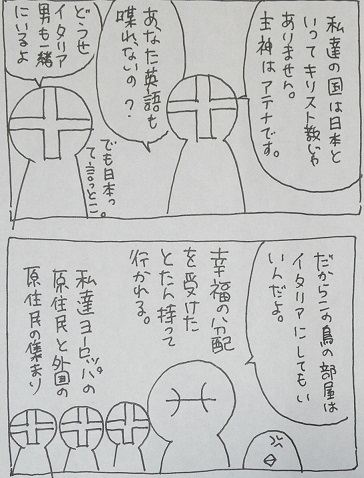 私達の国は日本と
いってキリスト教じゃ
ありません。
主神はアテナです。
あなた英語も
喋れないの?
どうせ
イタリア
男も一緒
にいるよ
でも日本っ
て言っとこ。
だからこの鳥の部屋は
イタリアにしてもい
いんだよ。
幸福の分配
を受けた
とたん持って
行かれる。
私達ヨーロッパの
原住民と外国の
原住民の集まり